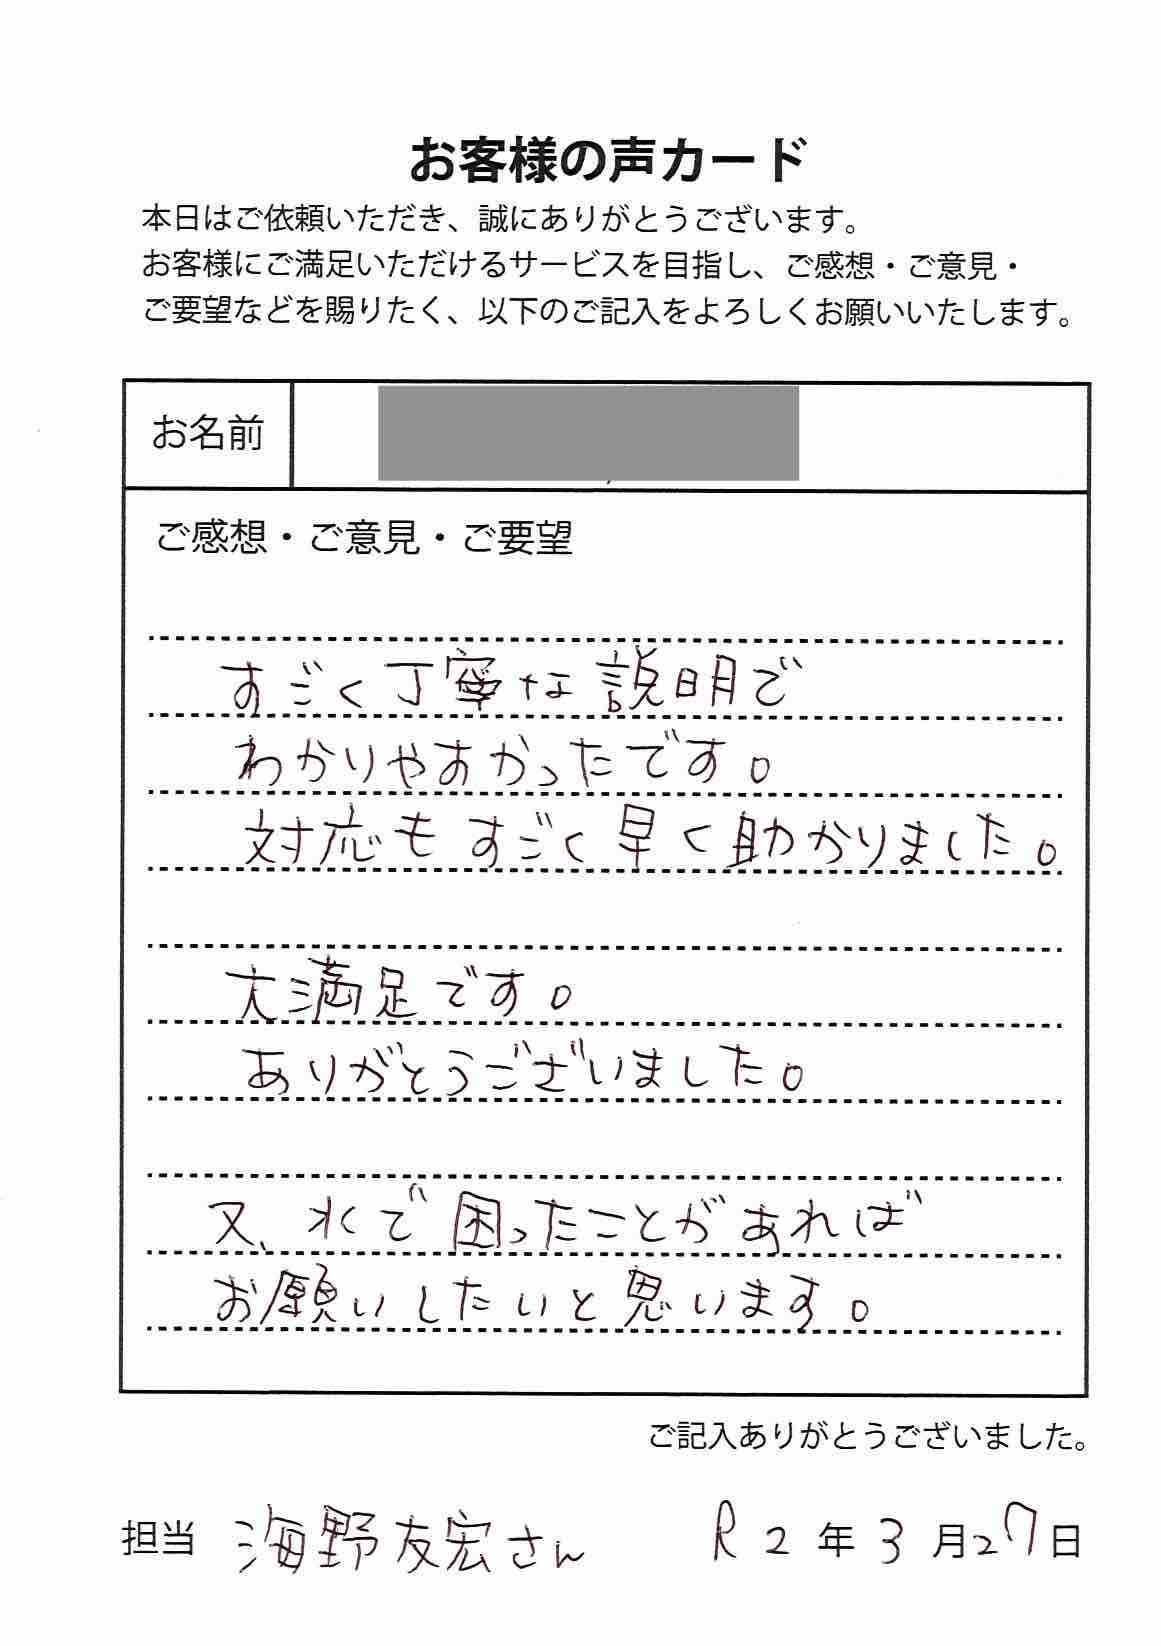 お客様の声カード
本日はご依頼いただき、誠にありがとうございます。
お客様にご満足いただけるサービスを目指し、ご感想・ご意見・
ご要望などを賜りたく、以下のご記入をよろしくお願いいたします。
お名前
ご感想・ご意見・ご要望
すごく丁寧な説明で
わかりやすかったです。
対応もすごく早く助かりました。
大満足です。
ありがとうございました。
又、水で困ったことがあれば
お願いしたいと思います。
ご記入ありがとうございました。
担当 海野友宏さん R2年3月27日